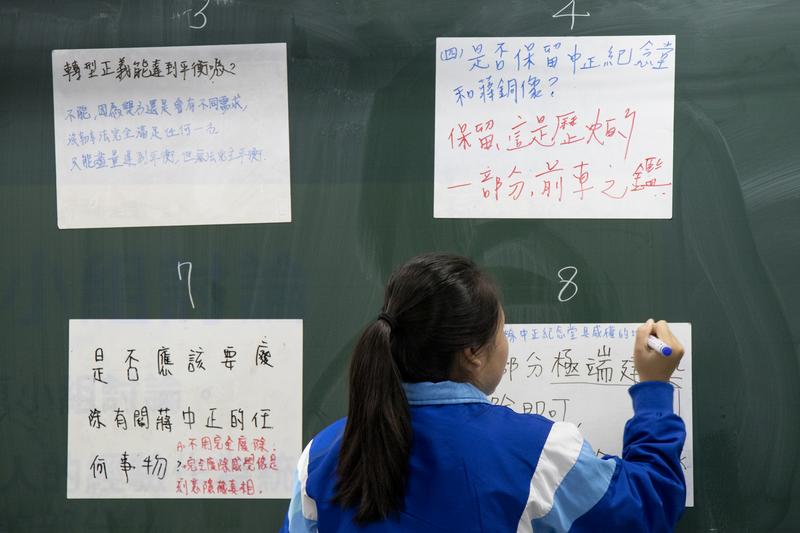 3
轉型正義能達到平衡嗎?
不能,因為雙方還是會有不同需求,
沒辦法完全滿足任何一方
只能盡量達到平衡,但無法完全平衡.
4
(四)是否保留中正紀念堂
和蔣銅像?
保留,這是歷史的
一部分,前車之鑑
7
是否應該要廢
除有關蔣中正的任
何事物?
A:不用完全廢除.
完全廢除感覺像是
刻意隱藏真相.
8
除中正紀念堂具威權的
部分極端建
除即可